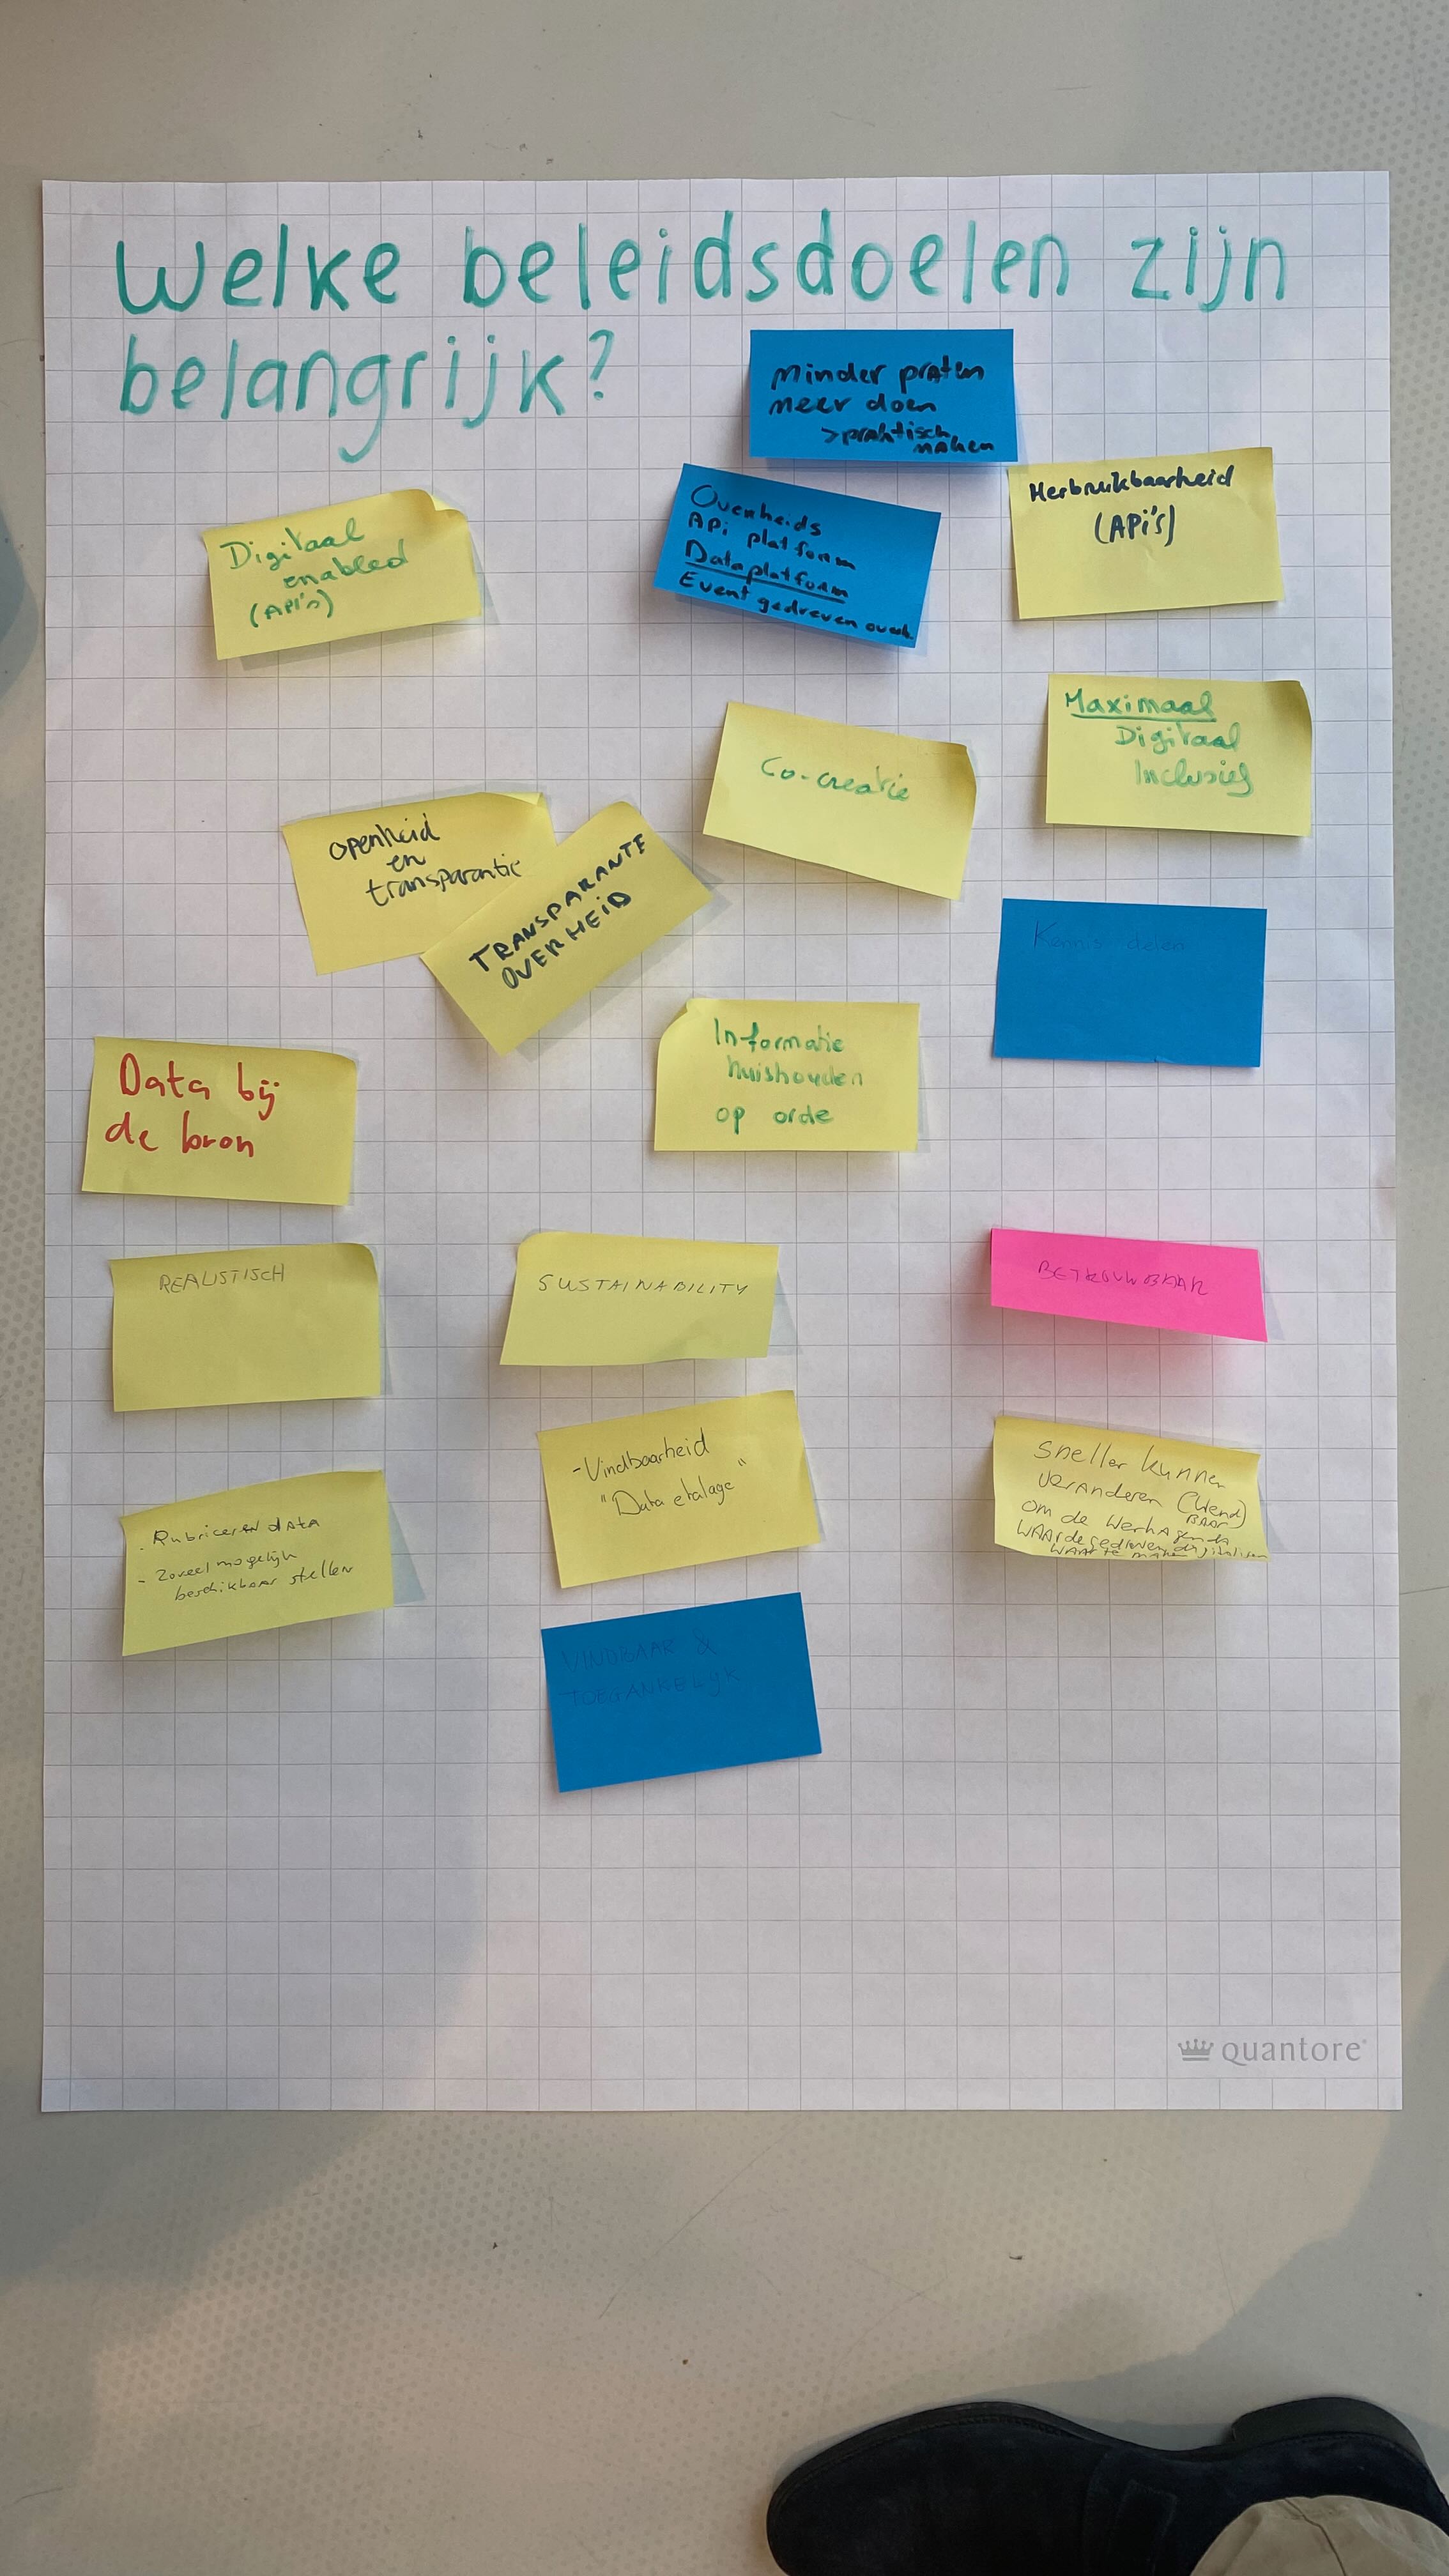 Welke beleidsdoelen zijn
belangrijk?
minder praten
meer doen
> praktisch
maken
Overheids
API platform
Dataplatform
Event gedreven overh.
Herbruikbaarheid
(API's)
Digitaal
enabled
(API's)
Maximaal
Digitaal
Inclusief
Co-creatie
openheid
en
transparantie
TRANSPARANTE
OVERHEID
Kennis delen
Informatie
huishouden
op orde
Data bij
de bron
REALISTISCH
SUSTAINABILITY
BETROUWBAAR
- Vindbaarheid
"Data etalage"
sneller kunnen
veranderen (Wend)
BAAR
om de Werkagenda
WAARdegedreven digitaliseren
WAAR te maken
. Rubriceren data
- zoveel mogelijk
beschikbaar stellen
VINDBAAR &
TOEGANKELIJK
quantore